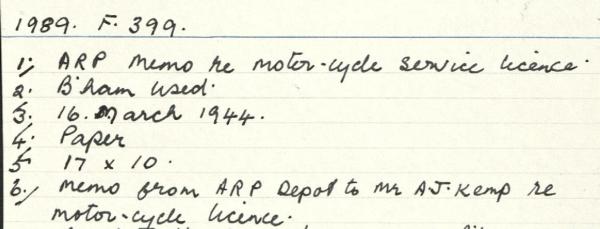 1989. F. 399.
1; ARP memo re motor-cycle service licence.
2. B'ham used.
3. 16. March 1944.
4. Paper
5. 17 x 10.
6., memo from ARP Depot to Mr A.J. Kemp re
motor-cycle licence.